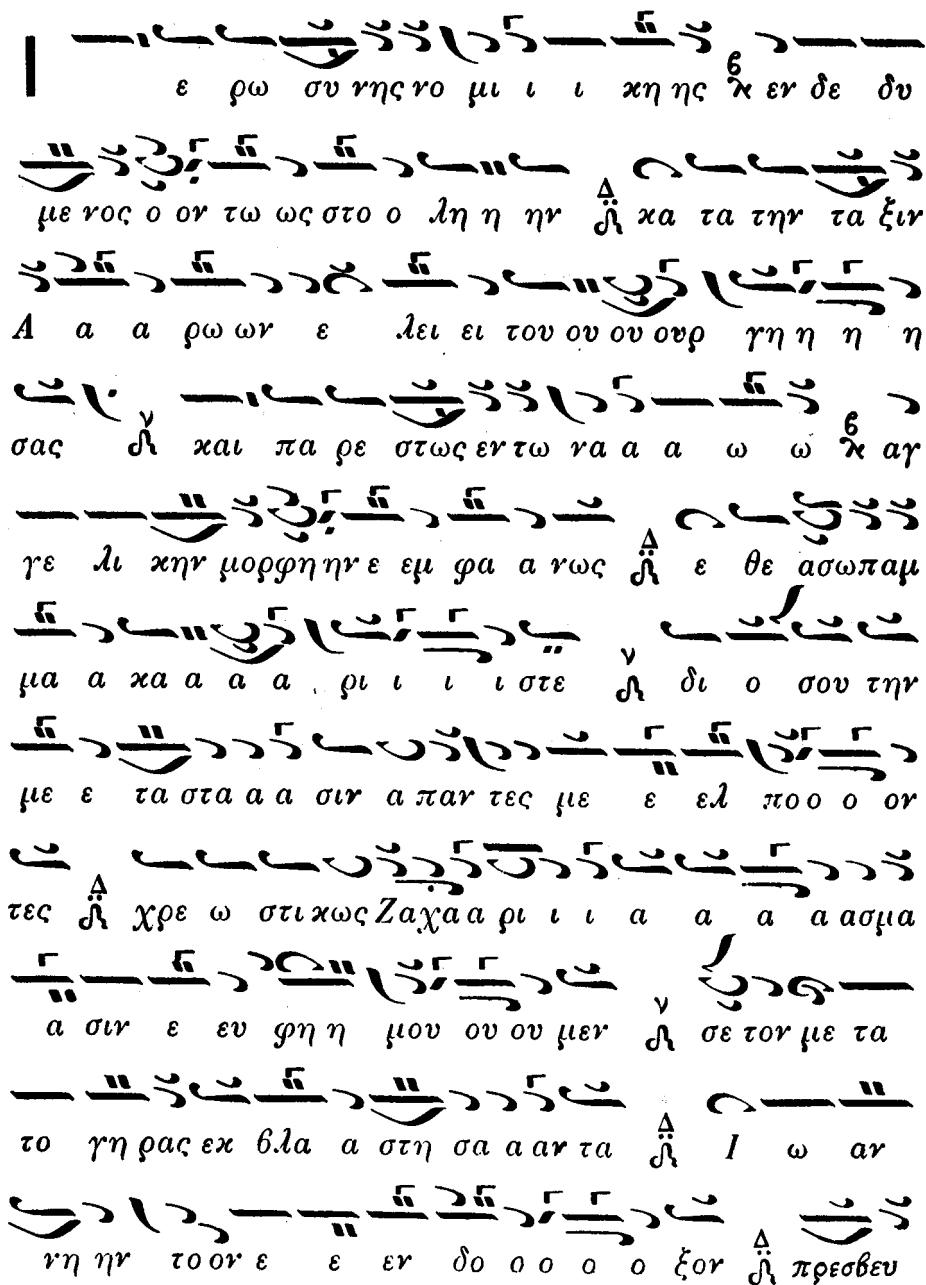 Ι ε ρω συ νης νο μι ι ι κη ης β εν δε δυ
με νος ο ον τω ως στο ο λη η ην Δ κα τα την τα ξιν
Α α α ρω ων ε λει ει του ου ου ουρ γη η η η
σας ν και πα ρε στως εν τω να α α ω ω β αγ
γε λι κην μορφη ην ε εμ φα α νως Δ ε θε ασω παμ
μα α κα α α α ρι ι ι ι στε ν δι ο σου την
με ε τα στα α α σιν α παν τες με ε ελ πο ο ο ον
τες Δ χρε ω στι κως Ζαχα α ρι ι ι α α α α ασμα
α σιν ε ευ φη η μου ου ου μεν ν σε τον με τα
το γη ρας εκ βλα α στη σα α αν τα Δ Ι ω αν
νη ην το ον ε ε εν δο ο ο ο ο ξον Δ πρεσβευ